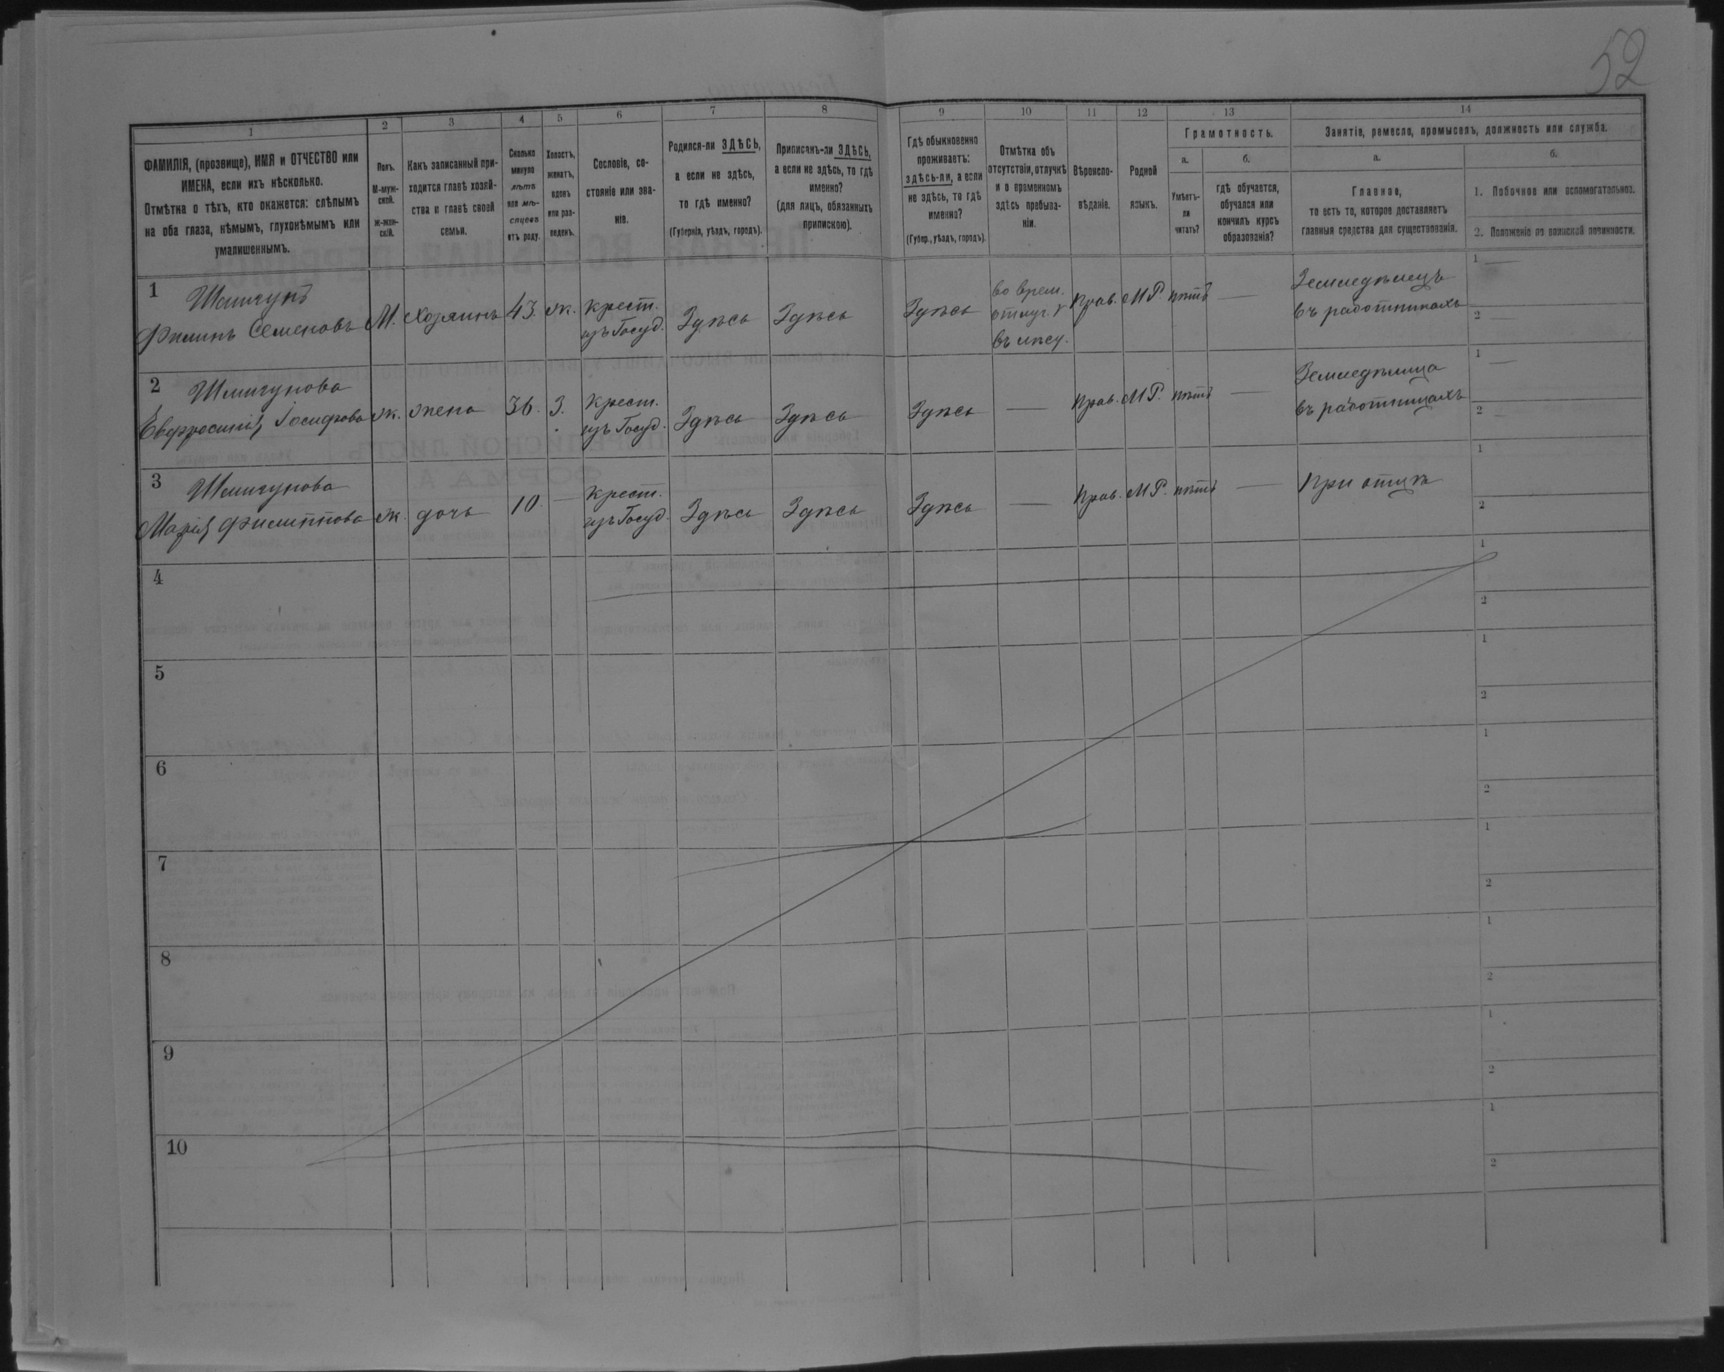 52
1
2
3
4
5
6
7
8
9
10
11
12
13
14
ФАМИЛІЯ, (прозвище), ИМЯ и ОТЧЕСТВО или
ИМЕНА, если ихъ нѣсколько.
Отмѣтка о тѣхъ, кто окажется: слѣпымъ
на оба глаза, нѣмымъ, глухонѣмымъ или
умалишеннымъ.
Полъ.
М-муж-
ской.
Ж-жен-
скій.
Какъ записанный при-
ходится главѣ хозяй-
ства и главѣ своей
семьи.
Сколько
минуло
лѣтъ
или мѣ-
сяцевъ
отъ роду.
Холостъ,
женатъ,
вдовъ
или раз-
веденъ.
Сословіе, со-
стояніе или зва-
ніе.
Родился-ли ЗДѢСЬ,
а если не здѣсь,
то гдѣ именно?
(Губернія, уѣздъ, городъ).
Приписанъ-ли ЗДѢСЬ,
а если не здѣсь, то гдѣ
именно?
(для лицъ, обязанныхъ
припискою).
Гдѣ обыкновенно
проживаетъ:
здѣсь-ли, а если
не здѣсь, то гдѣ
именно?
(Губер., уѣздъ, городъ).
Отмѣтка объ
отсутствіи, отлучкѣ
и о временномъ
здѣсь пребыва-
ніи.
Вѣроиспо-
вѣданіе.
Родной
языкъ.
Грамотность.
а.
б.
Умѣетъ-
ли
читать?
гдѣ обучается,
обучался или
кончилъ курсъ
образованія?
Занятіе, ремесло, промыселъ, должность или служба.
а.
б.
Главное,
то есть то, которое доставляетъ
главныя средства для существованія.
1. Побочное или вспомогательное.
2. Положеніе по воинской повинности.
1
Шмигунъ
Филипъ Семеновъ М. хозяинъ 43. ж. крест. изъ Госуд. Здѣсь Здѣсь Здѣсь во врем. отлуч. въ лѣсу. прав. М.Р. нѣтъ —
Земледѣлецъ
въ работникахъ
1 —
2 —
2
Шмигунова
Евфросинія Іосифова ж. жена 36. З. крест. изъ Госуд. Здѣсь Здѣсь Здѣсь — прав. М.Р. нѣтъ —
Земледѣлица
въ работницахъ
1 —
2 —
3
Шмигунова
Марія Филиппова ж. дочь 10 — крест. изъ Госуд. Здѣсь Здѣсь Здѣсь — прав. М.Р. нѣтъ —
при отцѣ
1
2
4
1
2
5
1
2
6
1
2
7
1
2
8
1
2
9
1
2
10
1
2